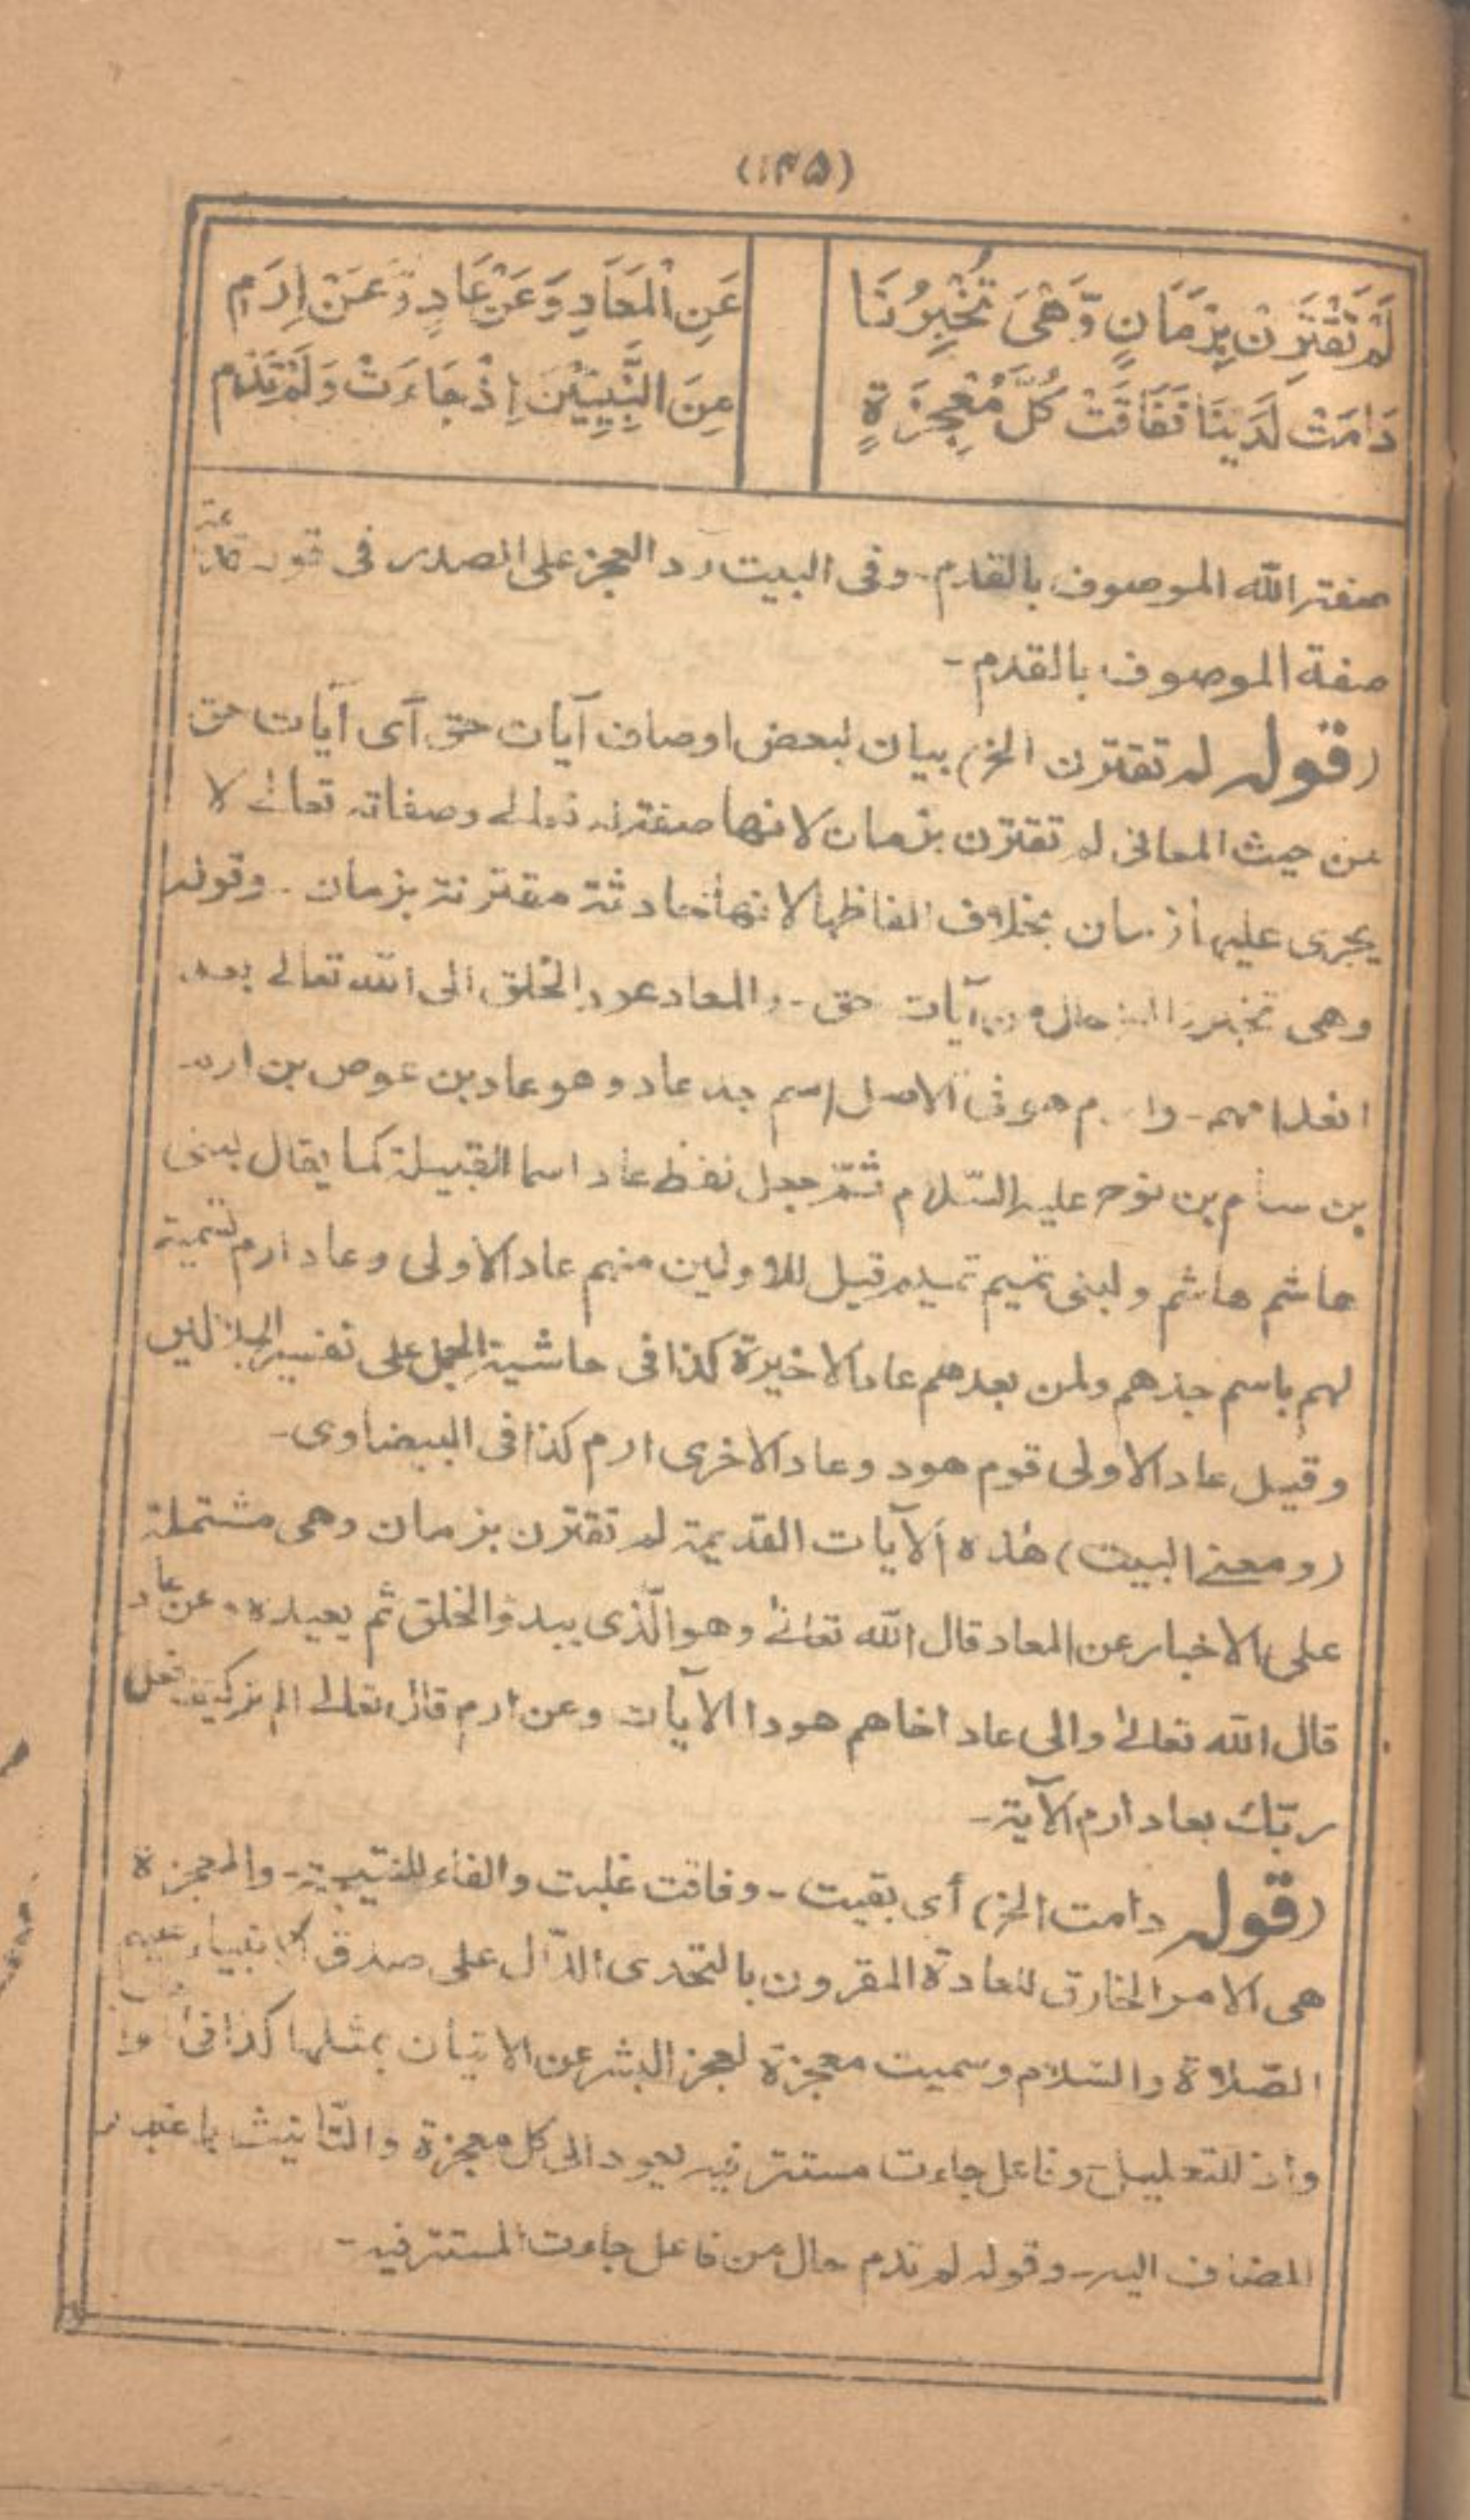 (۱۴۵)
لَمْ تَقْتَرِنْ بِزَمَانٍ وَّهْىَ تُخْبِرُنَا عَنِ الْمَعَادِ وَعَنْ عَادٍ وَّعَنْ اِرَمِ
دَامَتْ لَدَيْنَا فَفَاقَتْ كُلَّ مُعْجِزَةٍ مِنَ النَّبِيِّيْنَ اِذْ جَاءَتْ وَلَمْ تَدُم
صفة الله الموصوف بالقدم - وفى البيت رد العجز على الصدر فى قوله
صفة الموصوف بالقدم -
(قوله لم تقترن الخ) بيان لبعض اوصاف آيات حق آى آيات حق
من حيث المعانى لم تقترن بزمان لانها صفة له تعالے وصفاته تعالےٰ لا
يجرى عليها زمان بخلاف الفاظها لانها حادثة مقترنة بزمان - وقوله
وهى تخبرنا الخ حال من آيات حق - والمعاد عود الخلق الى الله تعالے بعد
انعدامهم - وارم هو فى الاصل اسم جد عاد وهو عاد بن عوص بن ارم
بن سام بن نوح عليه السّلام ثمّ جعل لفظ عاد اسما للقبيلة كما يقال لبنى
هاشم هاشم ولبنى تميم تميم قيل للاولين منهم عاد الاولى وعاد ارم تسمية
لهم باسم جدهم ولمن بعدهم عاد الاخيرة كذا فى حاشية الجمل على تفسير الجلالين
وقيل عاد الاولى قوم هود وعاد الاخرى ارم كذا فى البيضاوى -
(ومعنے البيت) هٰذه الآيات القديمة لم تقترن بزمان وهى مشتملة
على الاخبار عن المعاد قال الله تعالےٰ وهو الّذى يبدؤ الخلق ثم يعيده، عن عاد
قال الله تعالےٰ والى عاد اخاهم هودا الآيات وعن ارم قال تعالےٰ الم تر كيف فعل
ربّك بعاد ارم الآية -
(قوله دامت الخ) أى بقيت - وفاقت غلبت والفاء للنتيجية - والمعجزة
هى الامر الخارق للعادة المقرون بالتحدى الدّال على صدق الانبياء عليهم
الصّلاة والسّلام وسميت معجزة لعجز البشر عن الاتيان بمثلها كذا فى
واذ للتعليل وفاعل جاءت مستتر فيه يعود الى كل معجزة والتّانيث باعتبار
المضاف اليه - وقوله لم تدم حال من فاعل جاءت المستتر فيه -